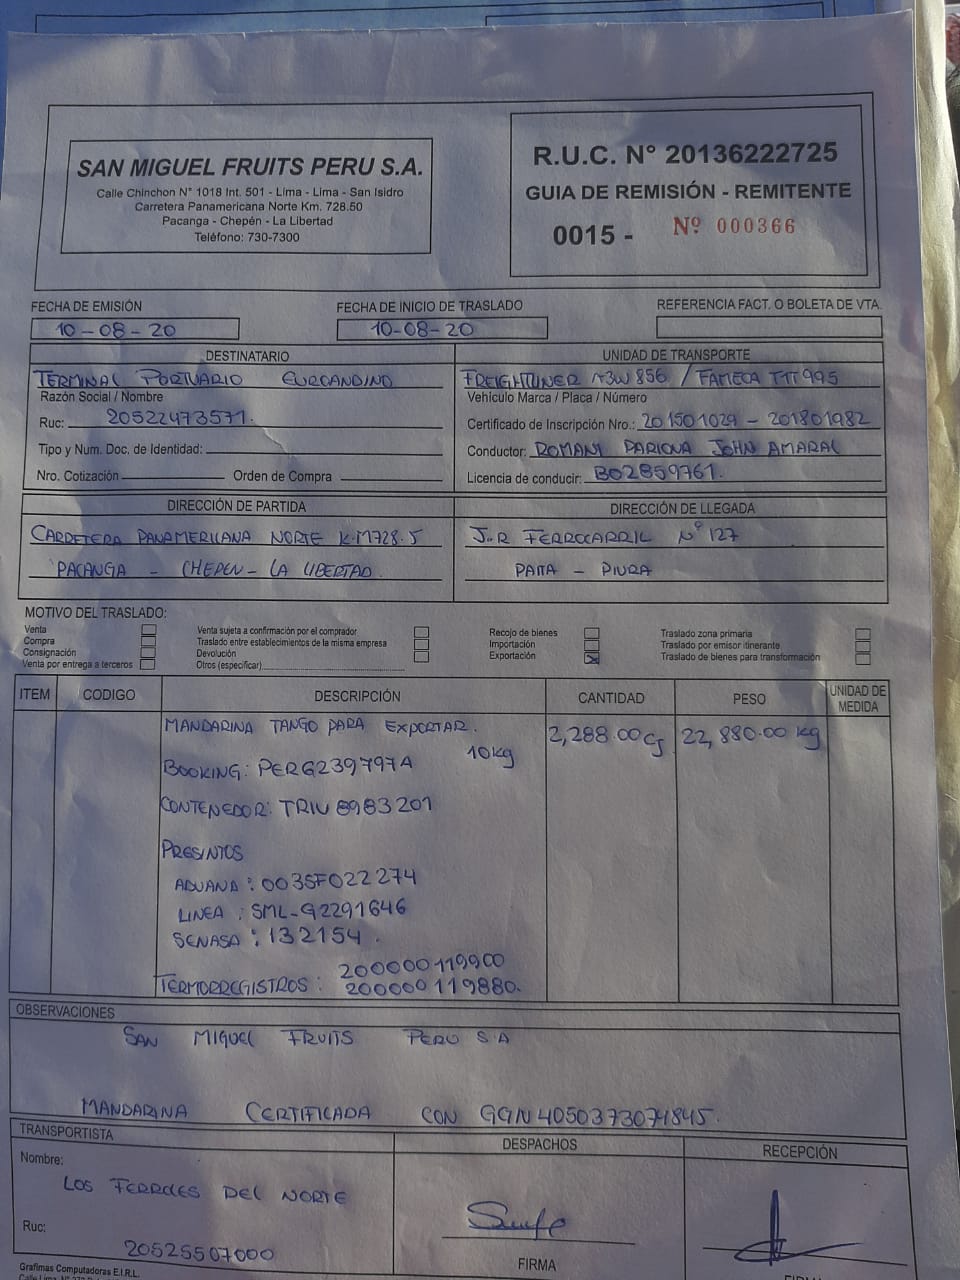 SAN MIGUEL FRUITS PERU S.A.
Calle Chinchon N° 1018 Int. 501 - Lima - Lima - San Isidro
Carretera Panamericana Norte Km. 728.50
Pacanga - Chepén - La Libertad
Teléfono: 730-7300
R.U.C. N° 20136222725
GUIA DE REMISIÓN - REMITENTE
0015 - Nº 000366
FECHA DE EMISIÓN
10-08-20
FECHA DE INICIO DE TRASLADO
10-08-20
REFERENCIA FACT. O BOLETA DE VTA.
DESTINATARIO
TERMINAL PORTUARIO EUROANDINO
Razón Social / Nombre
Ruc: 20522473571.
Tipo y Num. Doc. de Identidad:
Nro. Cotización Orden de Compra
UNIDAD DE TRANSPORTE
FREIGHTLINER / FAMECA T1T 995
Vehículo Marca / Placa / Número
Certificado de Inscripción Nro.: 201501029 - 201801982
Conductor: ROMANI PARIONA JOHN AMARAL
Licencia de conducir: B02859761.
DIRECCIÓN DE PARTIDA
CARRETERA PANAMERICANA NORTE K.M728.5
PACANGA - CHEPEN - LA LIBERTAD.
DIRECCIÓN DE LLEGADA
J.R FERROCARRIL N° 127
PAITA - PIURA
MOTIVO DEL TRASLADO:
Venta
Compra
Consignación
Venta por entrega a terceros
Venta sujeta a confirmación por el comprador
Traslado entre establecimientos de la misma empresa
Devolución
Otros (especificar)
Recojo de bienes
Importación
Exportación X
Traslado zona primaria
Traslado por emisor itinerante
Traslado de bienes para transformación
ITEM CODIGO DESCRIPCIÓN CANTIDAD PESO UNIDAD DE MEDIDA
MANDARINA TANGO PARA EXPORTAR. 2,288.00 cj 22,880.00 kg
10kg
BOOKING: PERG239797A
CONTENEDOR: TRIU 8983201
PRESINTOS
ADUANA : 003SF022274
LINEA : SML-G2291646
SENASA : 132154.
TERMORREGISTROS : 200000119900
200000119880.
OBSERVACIONES
SAN MIGUEL FRUITS PERU S.A
MANDARINA CERTIFICADA CON GGN 4050373074845.
TRANSPORTISTA
Nombre:
LOS FERROLES DEL NORTE
Ruc:
20525507000
DESPACHOS
FIRMA
RECEPCIÓN
Grafimas Computadoras E.I.R.L.